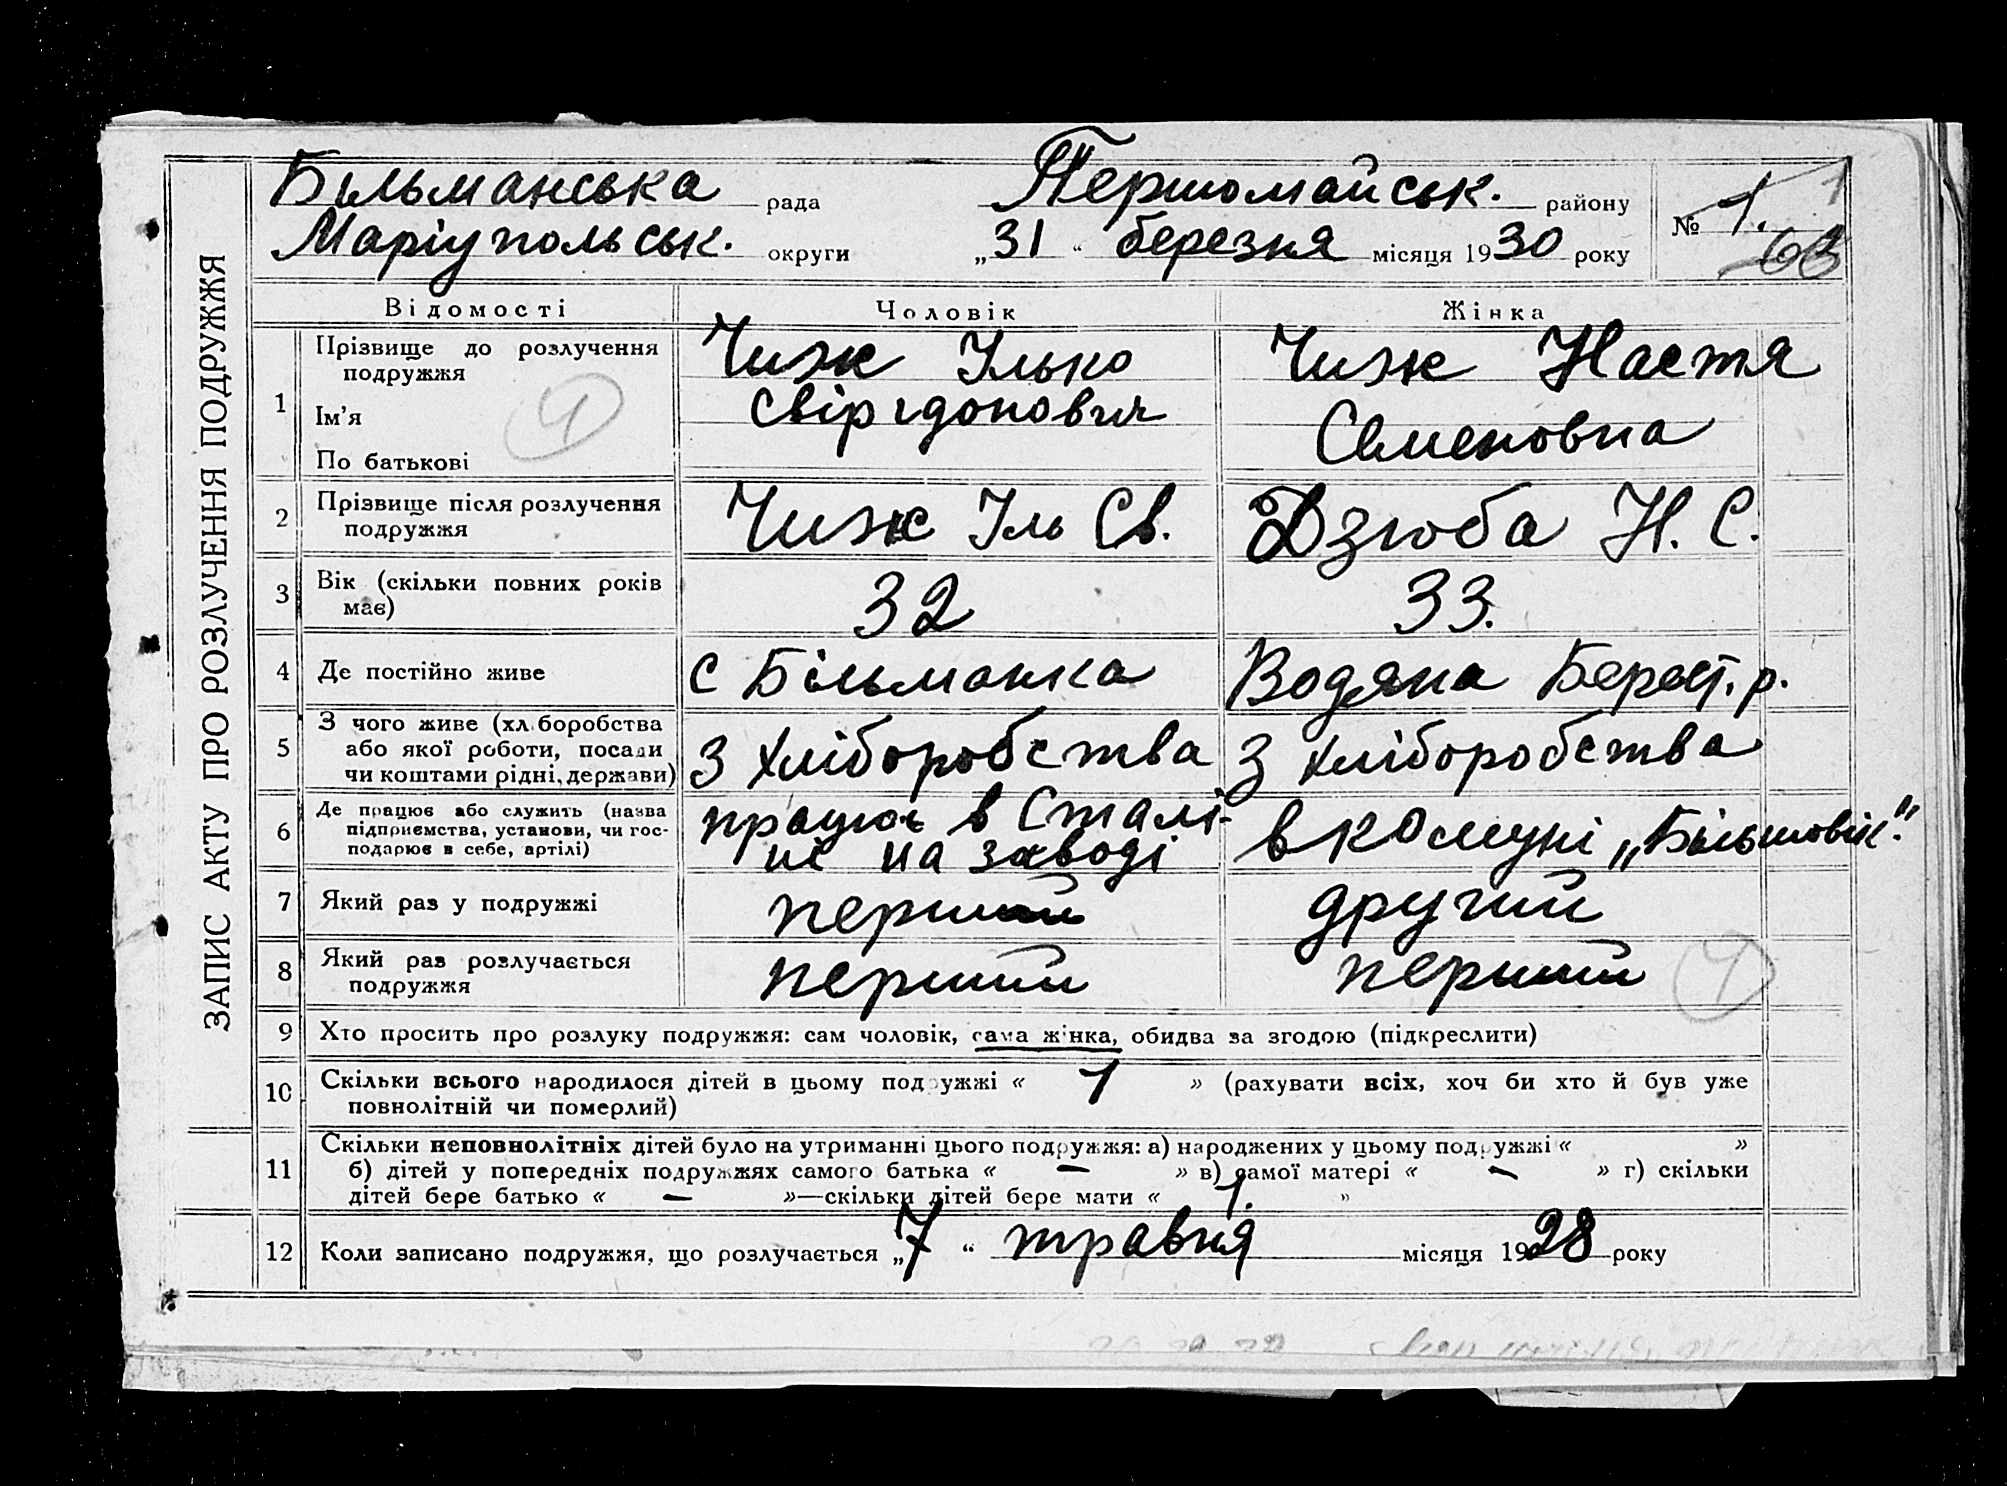 ЗАПИС АКТУ ПРО РОЗЛУЧЕННЯ ПОДРУЖЖЯ
Більманська рада Першомайськ. району № 1. 1
Маріупольськ. округи „31“ березня місяця 1930 року
Відомості Чоловік Жінка
1 Прізвище до розлучення подружжя Чиж Ілько Чиж Настя
Ім'я Свірідонович Семеновна
По батькові
2 Прізвище після розлучення подружжя Чиж Іль Св. Дзюба Н. С.
3 Вік (скільки повних років має) 32 33.
4 Де постійно живе с Більманка Водяна Берест. р.
5 З чого живе (хліборобства або якої роботи, посади чи коштами рідні, держави) З хліборобства З хліборобства
6 Де працює або служить (назва підприємства, установи, чи господарює в себе, артілі) працює в Сталіні на заводі в комуні „Більшовік".
7 Який раз у подружжі перший другий
8 Який раз розлучається подружжя перший перший
9 Хто просить про розлуку подружжя: сам чоловік, сама жінка, обидва за згодою (підкреслити)
10 Скільки всього народилося дітей в цьому подружжі « 1 » (рахувати всіх, хоч би хто й був уже
повнолітній чи померлий)
11 Скільки неповнолітніх дітей було на утриманні цього подружжя: а) народжених у цьому подружжі « »
б) дітей у попередніх подружжях самого батька « — » в) самої матері « — » г) скільки
дітей бере батько « — »—скільки дітей бере мати « 1. »
12 Коли записано подружжя, що розлучається „7“ травня місяця 1928 року